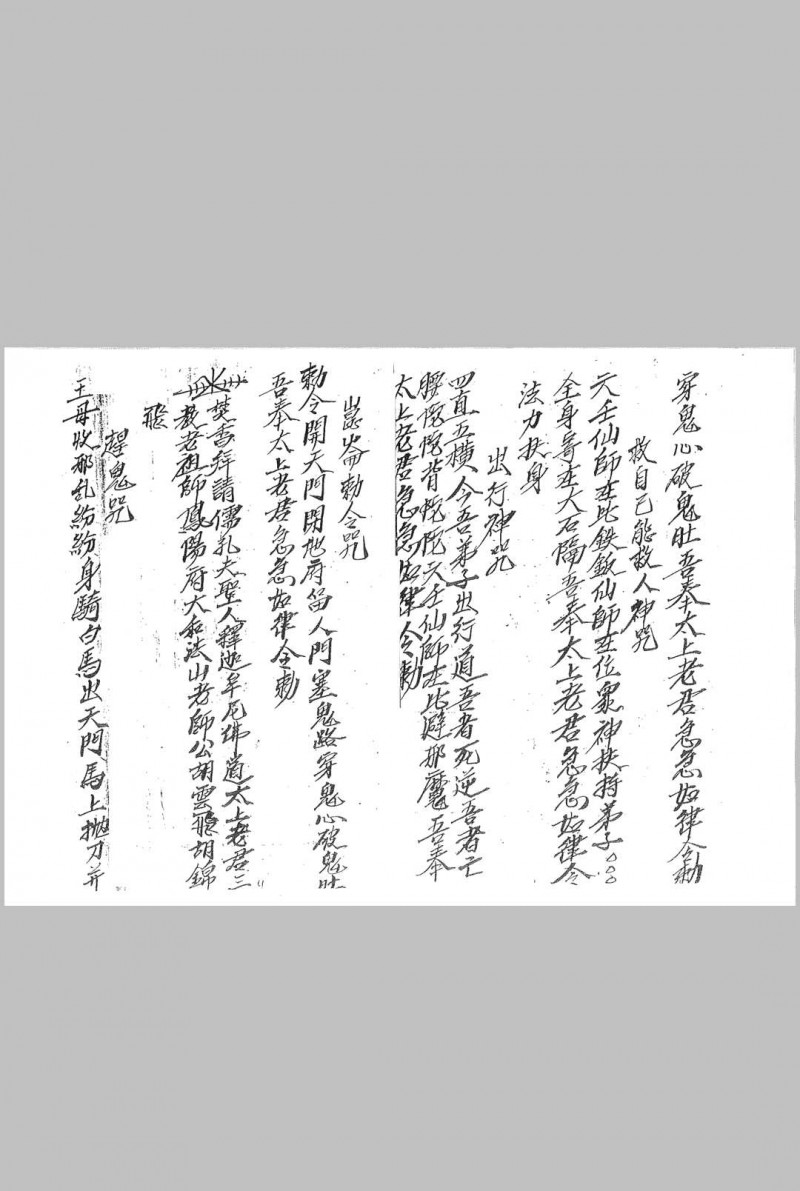 穿鬼心破鬼肚吾奉太上老君急急如律令勅
救自己能救人神咒
六壬仙師在此鉄銃仙師在位衆神扶持弟子○○○
全身寄在大石隔吾奉太上老君急急如律令
法力扶身
出行神咒
四直五横人今吾弟子出行道吾者死逆吾者亡
腰恍恍背恍恍六壬仙師在此避邪魔吾奉
太上老君急急如律令勅
崑崙勅令咒
勅令開天門閉地府留人門塞鬼路穿鬼心破鬼肚
吾奉太上老君急急如律令勅
焚香拜請儒孔夫聖人釋迦牟尼佛道太上老君三
教老祖師鳳陽府大和法山老師公胡雲飛胡錦
飛
趕鬼咒
王母收邪乱紛紛身騎白馬出天門馬上抛刀并